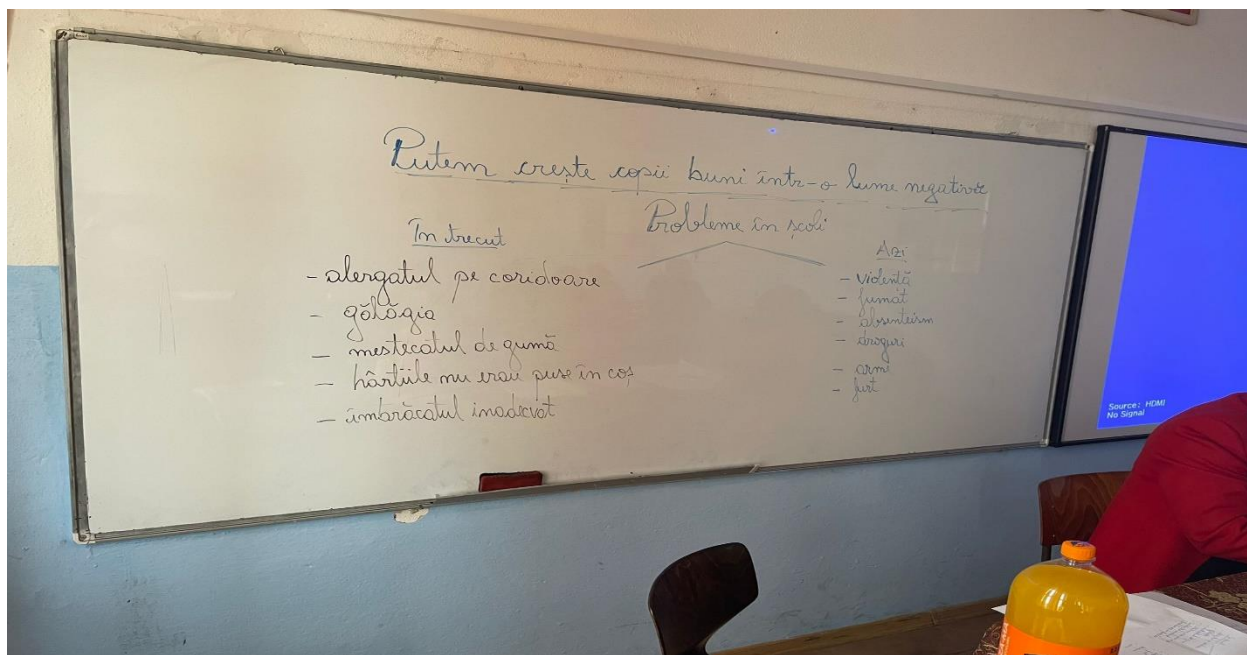 Putem crește copii buni într-o lume negativă
Probleme în școli
În trecut
- alergatul pe coridoare
- gălăgia
- mestecatul de gumă
- hârtiile nu erau puse în coș
- îmbrăcatul inadecvat
Azi
- violență
- fumat
- absenteism
- droguri
- arme
- furt
Source: HDMI
No Signal